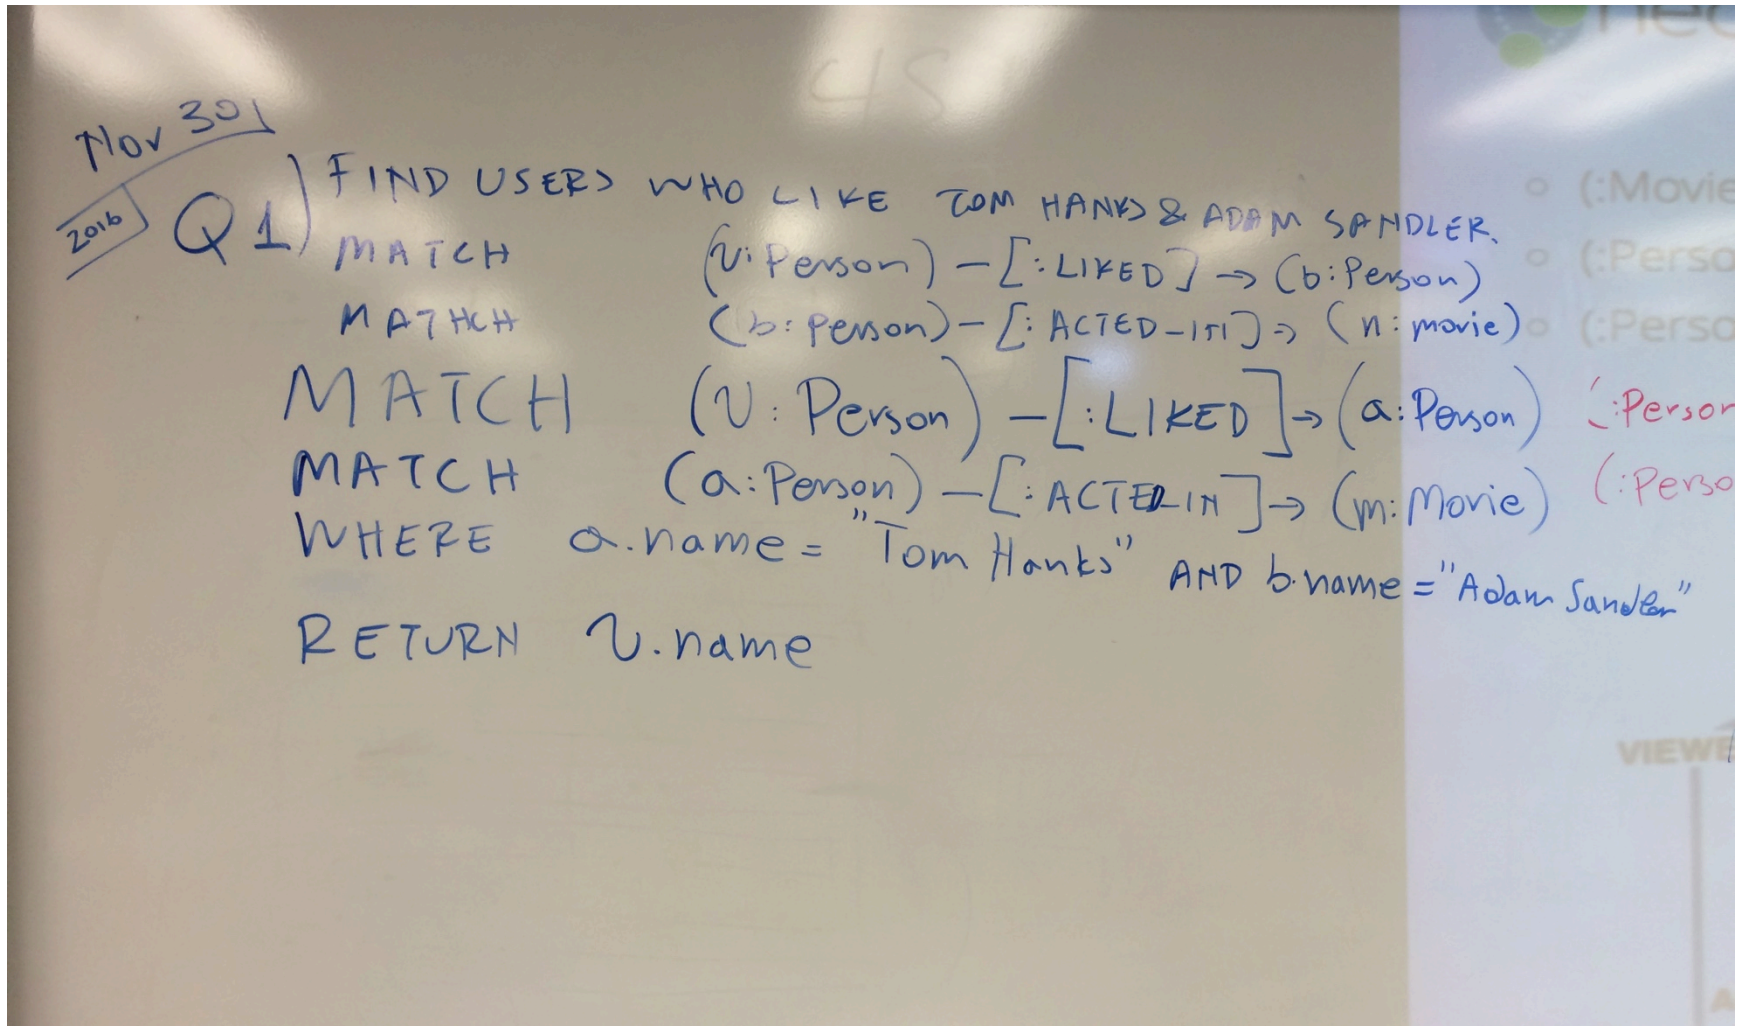 45
Nov 30,
2016
Q1) FIND USERS WHO LIKE TOM HANKS & ADAM SANDLER.
MATCH (u:Person)-[:LIKED]->(b:Person)
MATHCH (b:person)-[:ACTED_IN]->(n:movie)
MATCH (u:Person)-[:LIKED]->(a:Person)
MATCH (a:Person)-[:ACTED_IN]->(m:Movie)
WHERE a.name="Tom Hanks" AND b.name="Adam Sandler"
RETURN u.name
neo
(:Movie
(:Perso
(:Perso
(:Person
(:Perso
VIEWE
A